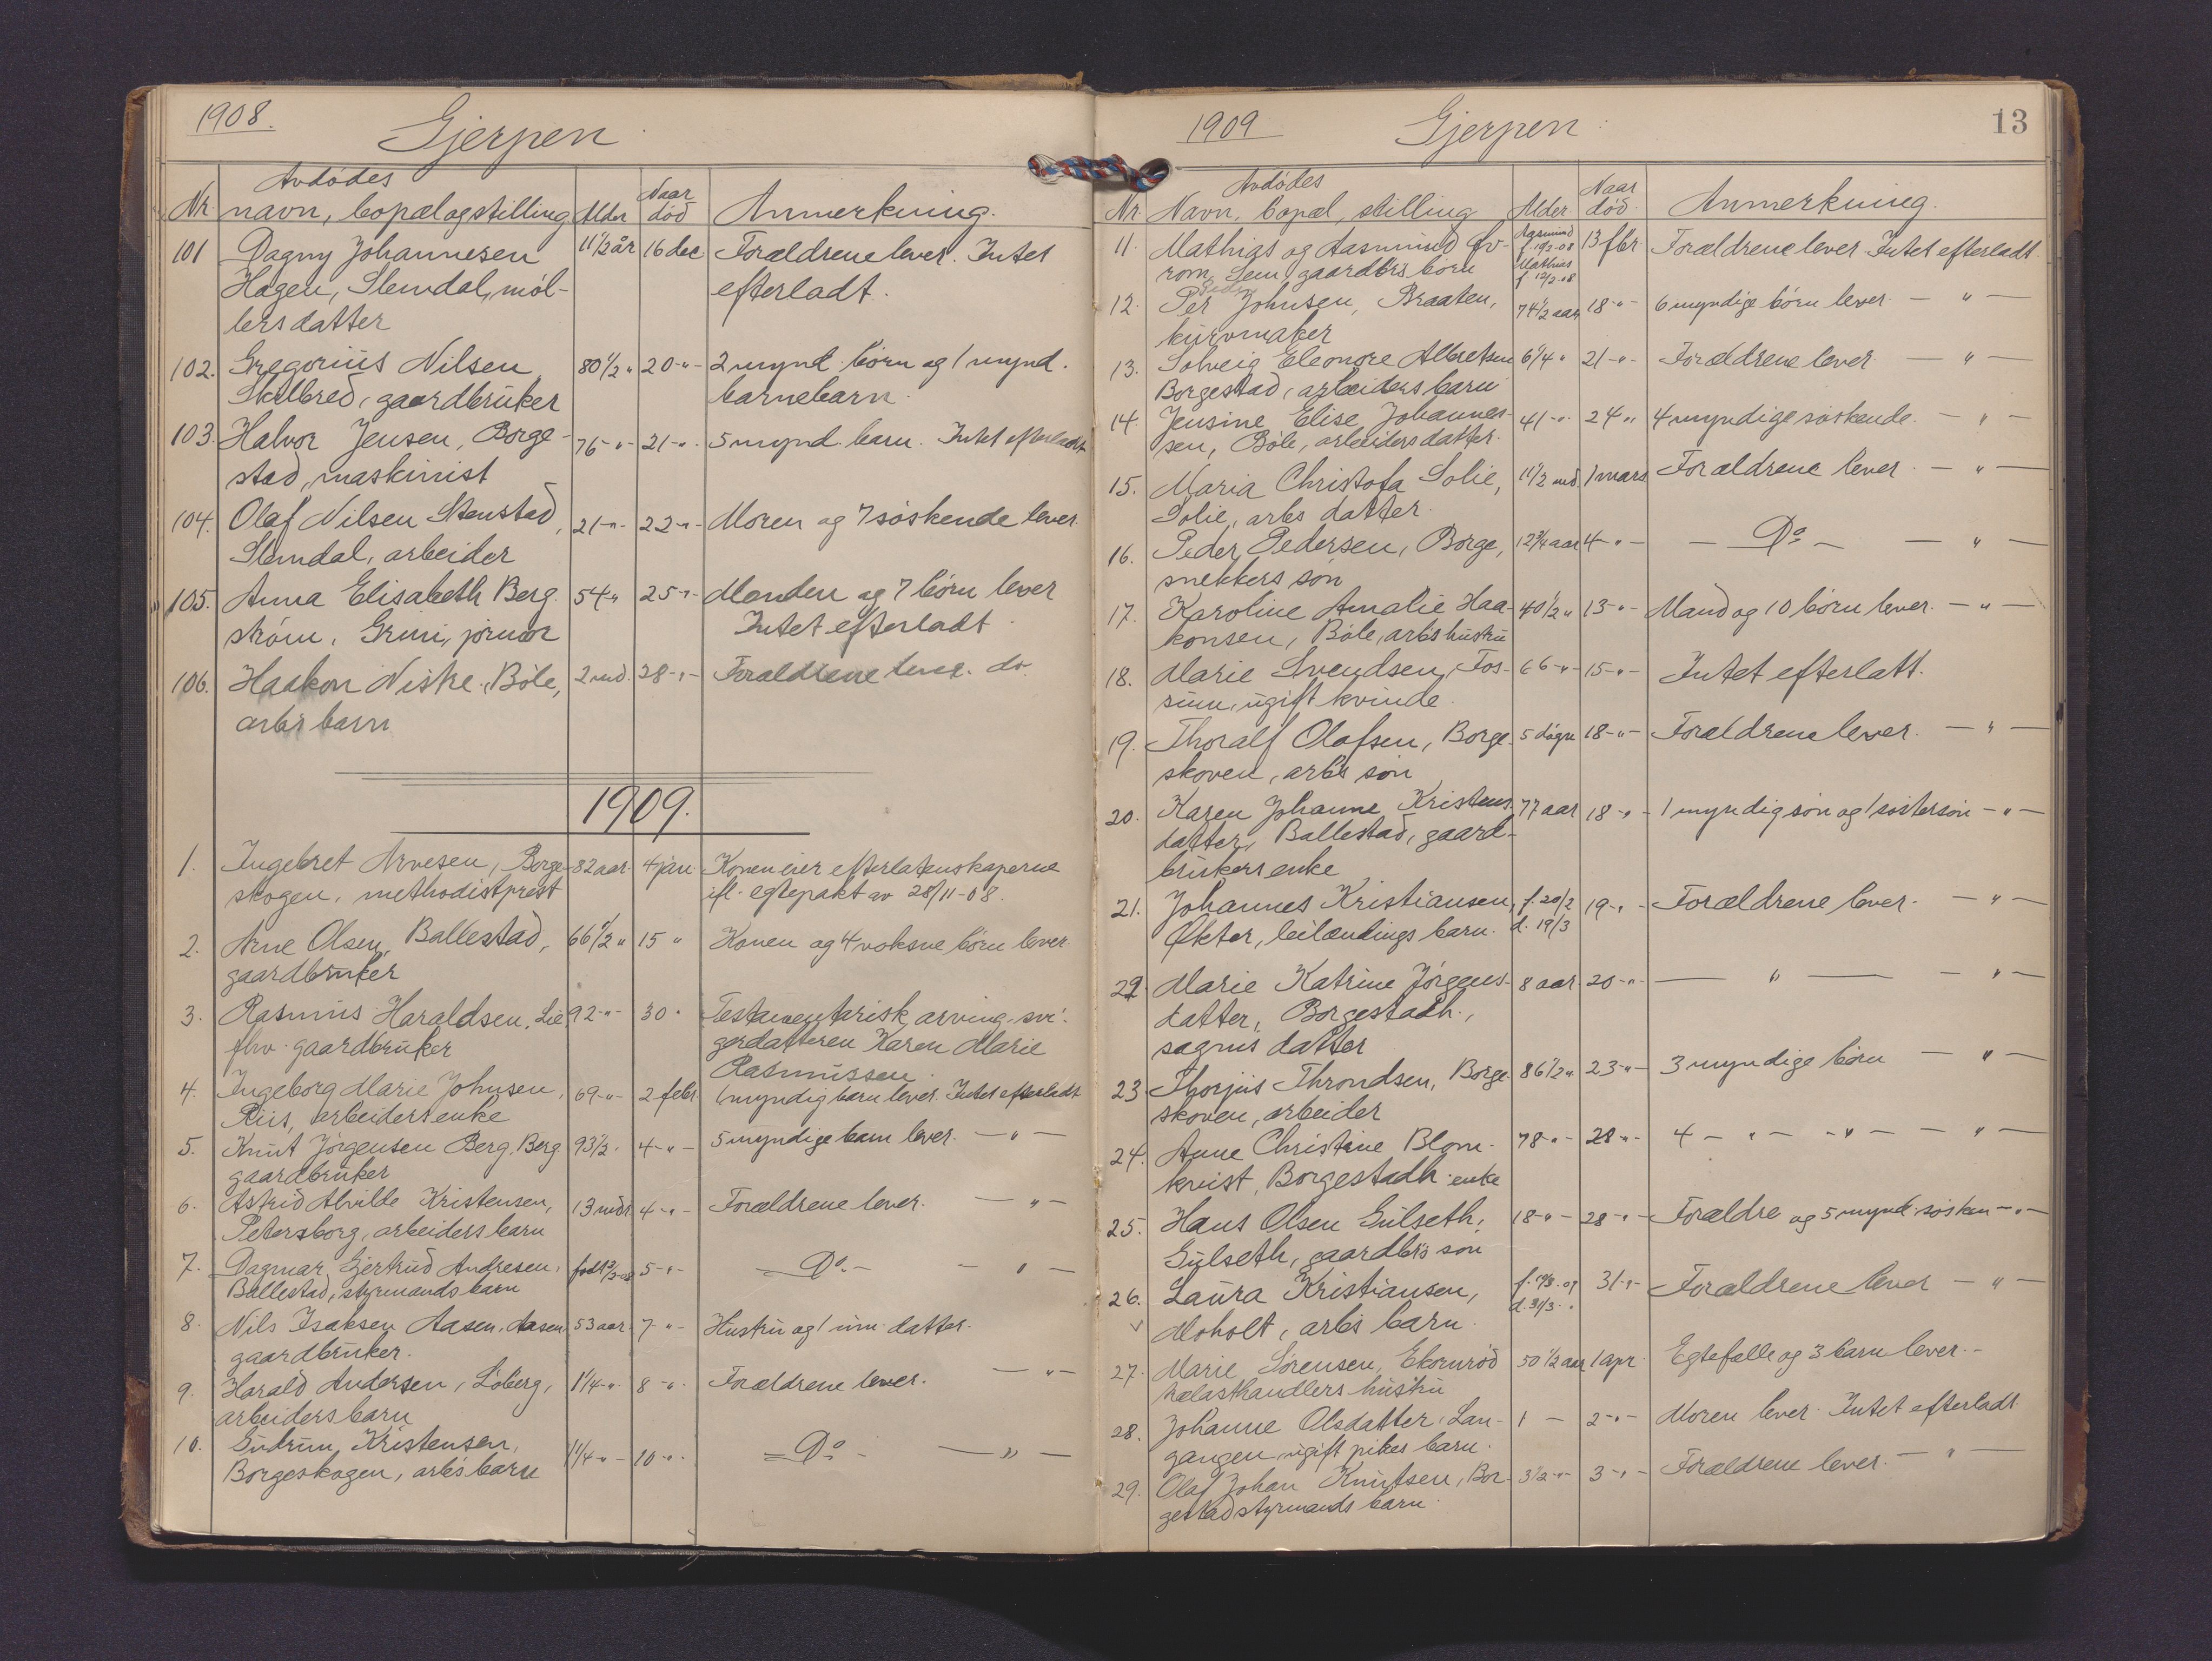 1908.
Gjerpen
Nr. Avdødes navn, bopæl og stilling Alder Naar død Anmerkning.
101 Dagny Johannesen 11½ år 16 dec Forældrene lever. Intet
Hagen, Slemdal, møl- efterladt.
lers datter
102. Gregorius Nilsen 80½ " 20 -"- 2 mynd. børn og 1 mynd.
Skilbred, gaardbruker barnebarn.
103. Halvor Jensen, Borge- 76 -"- 21 -"- 5 mynd. barn. Intet efterladt
stad, maskinist
104. Olaf Nilsen Stenstad, 21 -"- 22 -"- Moren og 7 søskende lever.
Slemdal, arbeider
105. Anna Elisabeth Berg- 54 " 25 -"- Manden og 7 børn lever
strøm, Grini, jormor Intet efterladt.
106. Haakon Niske, Bøle, 2 md. 28 -"- Forældrene lever. do.
arb's barn
1909.
1. Ingebret Arvesen, Borge- 82 aar 4 jan Konen eier efterlatenskaperne
skogen, methodistprest ifl. egtepakt av 28/11-08.
2. Arne Olsen, Ballestad, 66½ " 15 " Konen og 4 voksne børn lever.
gaardbruker
3. Rasmus Haraldsen, Lie 92 -"- 30 " Testamentarisk arving svi-
fhv. gaardbruker gerdatteren Karen Marie
Rasmussen.
4. Ingeborg Marie Johnsen, 69 -"- 2 febr. 1 myndig barn lever. Intet efterladt
Riis, arbeidersenke
5. Knut Jørgensen Berg, Berg 93½ " 4 -"- 5 myndige barn lever. -"-
gaardbruker
6. Astrid Alvilde Kristensen, 13 mdr 4 -"- Forældrene lever. -"-
Petersborg, arbeiders barn
7. Dagmar Gjertrud Andresen, 5 -"- Do. -"-
Ballestad, styrmands barn
8. Nils Isaksen Aasen, Aasen 53 aar 7 -"- Hustru og 1 um. datter.
gaardbruker.
9. Harald Andersen, Løberg, 1¼ -"- 8 -"- Forældrene lever. -"-
arbeiders barn
10. Gudrun Kristensen, 1¼ -"- 10 -"- Do -"-
Borgeskogen, arb's barn
1909 Gjerpen 13
Nr. Avdødes Navn, bopæl, stilling Alder Naar død. Anmerkning.
11. Mathias og Aasmund Ov- Aasmund f. 19/2-08 13 fbr. Forældrene lever. Intet efterladt.
rom, Sem, gaardbr's børn Mathias f. 12/2-08
12. Per Johnsen, Braaten, 74½ aar 18 -"- 6 myndige børn lever. -"-
kurvmaker
13. Solveig Eleonore Albretsen 6¼ " 21 -"- Forældrene lever. -"-
Borgestad, arbeiders barn
14. Jensine Elise Johannes- 41 -"- 24 -"- 4 myndige søskende. -"-
sen, Bøle, arbeiders datter.
15. Maria Christofa Solie, 11½ md. 1 mars Forældrene lever. -"-
Solie, arbs datter.
16. Peder Pedersen, Borge, 12¾ aar 4 -"- Do -"-
snekkers søn
17. Karoline Amalie Haa- 40½ " 13 -"- Mand og 10 børn lever. -"-
konsen, Bøle, arb's hustru
18. Marie Svendsen, Fos- 66 -"- 15 -"- Intet efterlatt.
sum, ugift kvinde.
19. Thoralf Olafsen, Borge- 5 døgn 18 -"- Forældrene lever. -"-
skoven, arb's søn
20. Karen Johanne Kristens- 77 aar 18 -"- 1 myndig søn og 1 søstersøn -"-
datter, Ballestad, gaard-
brukers enke
21. Johannes Kristiansen, f. 20/2 19 -"- Forældrene lever. -"-
Økter, leilændings barn. d. 19/3
22. Marie Katrine Jørgens- 8 aar 20 -"- " -"-
datter, Borgestadh.,
datter
23. Thorjus Throndsen, Borge- 86½ " 23 -"- 3 myndige børn -"-
skoven, arbeider
24. Anne Christine Blom- 78 -"- 28 -"- 4 -"- -"- -"-
kvist, Borgestadh. enke
25. Hans Olsen Gulseth, 18 -"- 28 -"- Forældre og 5 mynd. søsken -"-
Gulseth, gaardbr's søn
26. Laura Kristiansen, 31 -"- Forældrene lever -"-
Moholt, arb's barn. d. 31/3
27. Marie Sørensen, Ekornrød 50½ aar 1 apr. Egtefælle og 3 barn lever. -
hustru
28. Johanne Olsdatter, Lan- 1 - 2 -"- Moren lever. Intet efterladt
gangen, ugift pikes barn.
29. Olaf Johan Knutsen, Bor- 3½ -"- 3 -"- Forældrene lever. -"-
gestad styrmands barn.